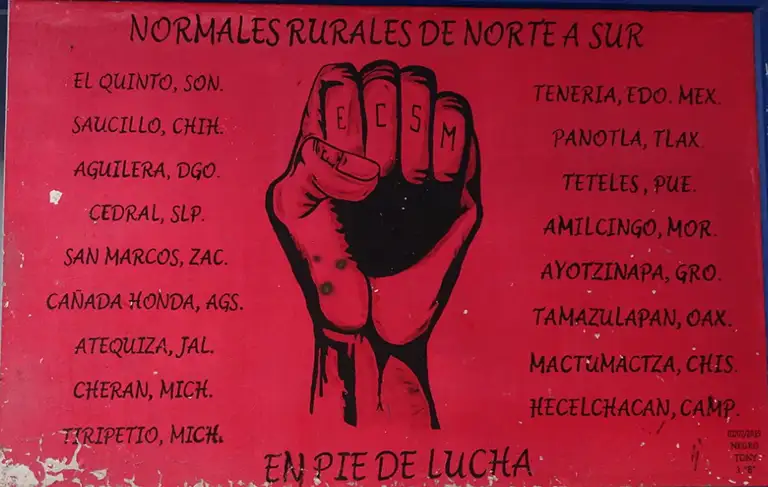 NORMALES RURALES DE NORTE A SUR
EL QUINTO, SON.
SAUCILLO, CHIH.
AGUILERA, DGO.
CEDRAL, SLP.
SAN MARCOS, ZAC.
CAÑADA HONDA, AGS.
ATEQUIZA, JAL.
CHERAN, MICH.
TIRIPETIO, MICH.
E C S M
TENERIA, EDO. MEX.
PANOTLA, TLAX.
TETELES, PUE.
AMILCINGO, MOR.
AYOTZINAPA, GRO.
TAMAZULAPAN, OAX.
MACTUMACTZA, CHIS.
HECELCHACAN, CAMP.
EN PIE DE LUCHA
NEGRO
TONY
3 "B"